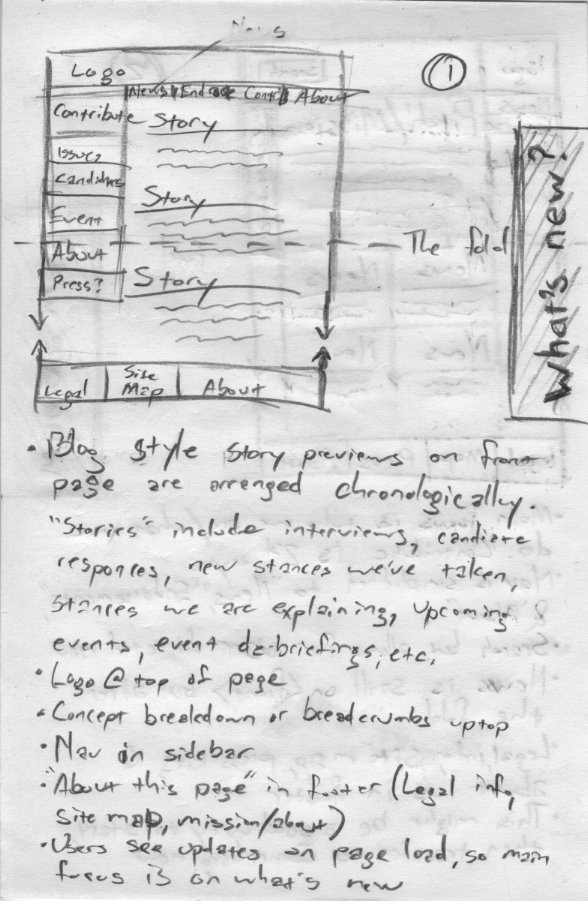 News
Logo
①
News Endorse Contrib About
Contribute
Story
Issues
Candidates
Story
Event
The fold
About
Press?
Story
What's new?
Legal
Site Map
About
• Blog style story previews on front
page are arranged chronologically.
"Stories" include interviews, candiate
responces, new stances we've taken,
stances we are explaining, upcoming
events, event de-briefings, etc.
• Logo @ top of page
• Concept breakdown or breadcrumbs up top
• Nav in sidebar
• "About this page" in footer (Legal info,
site map, mission/about)
• Users see updates on page load, so main
focus is on what's new